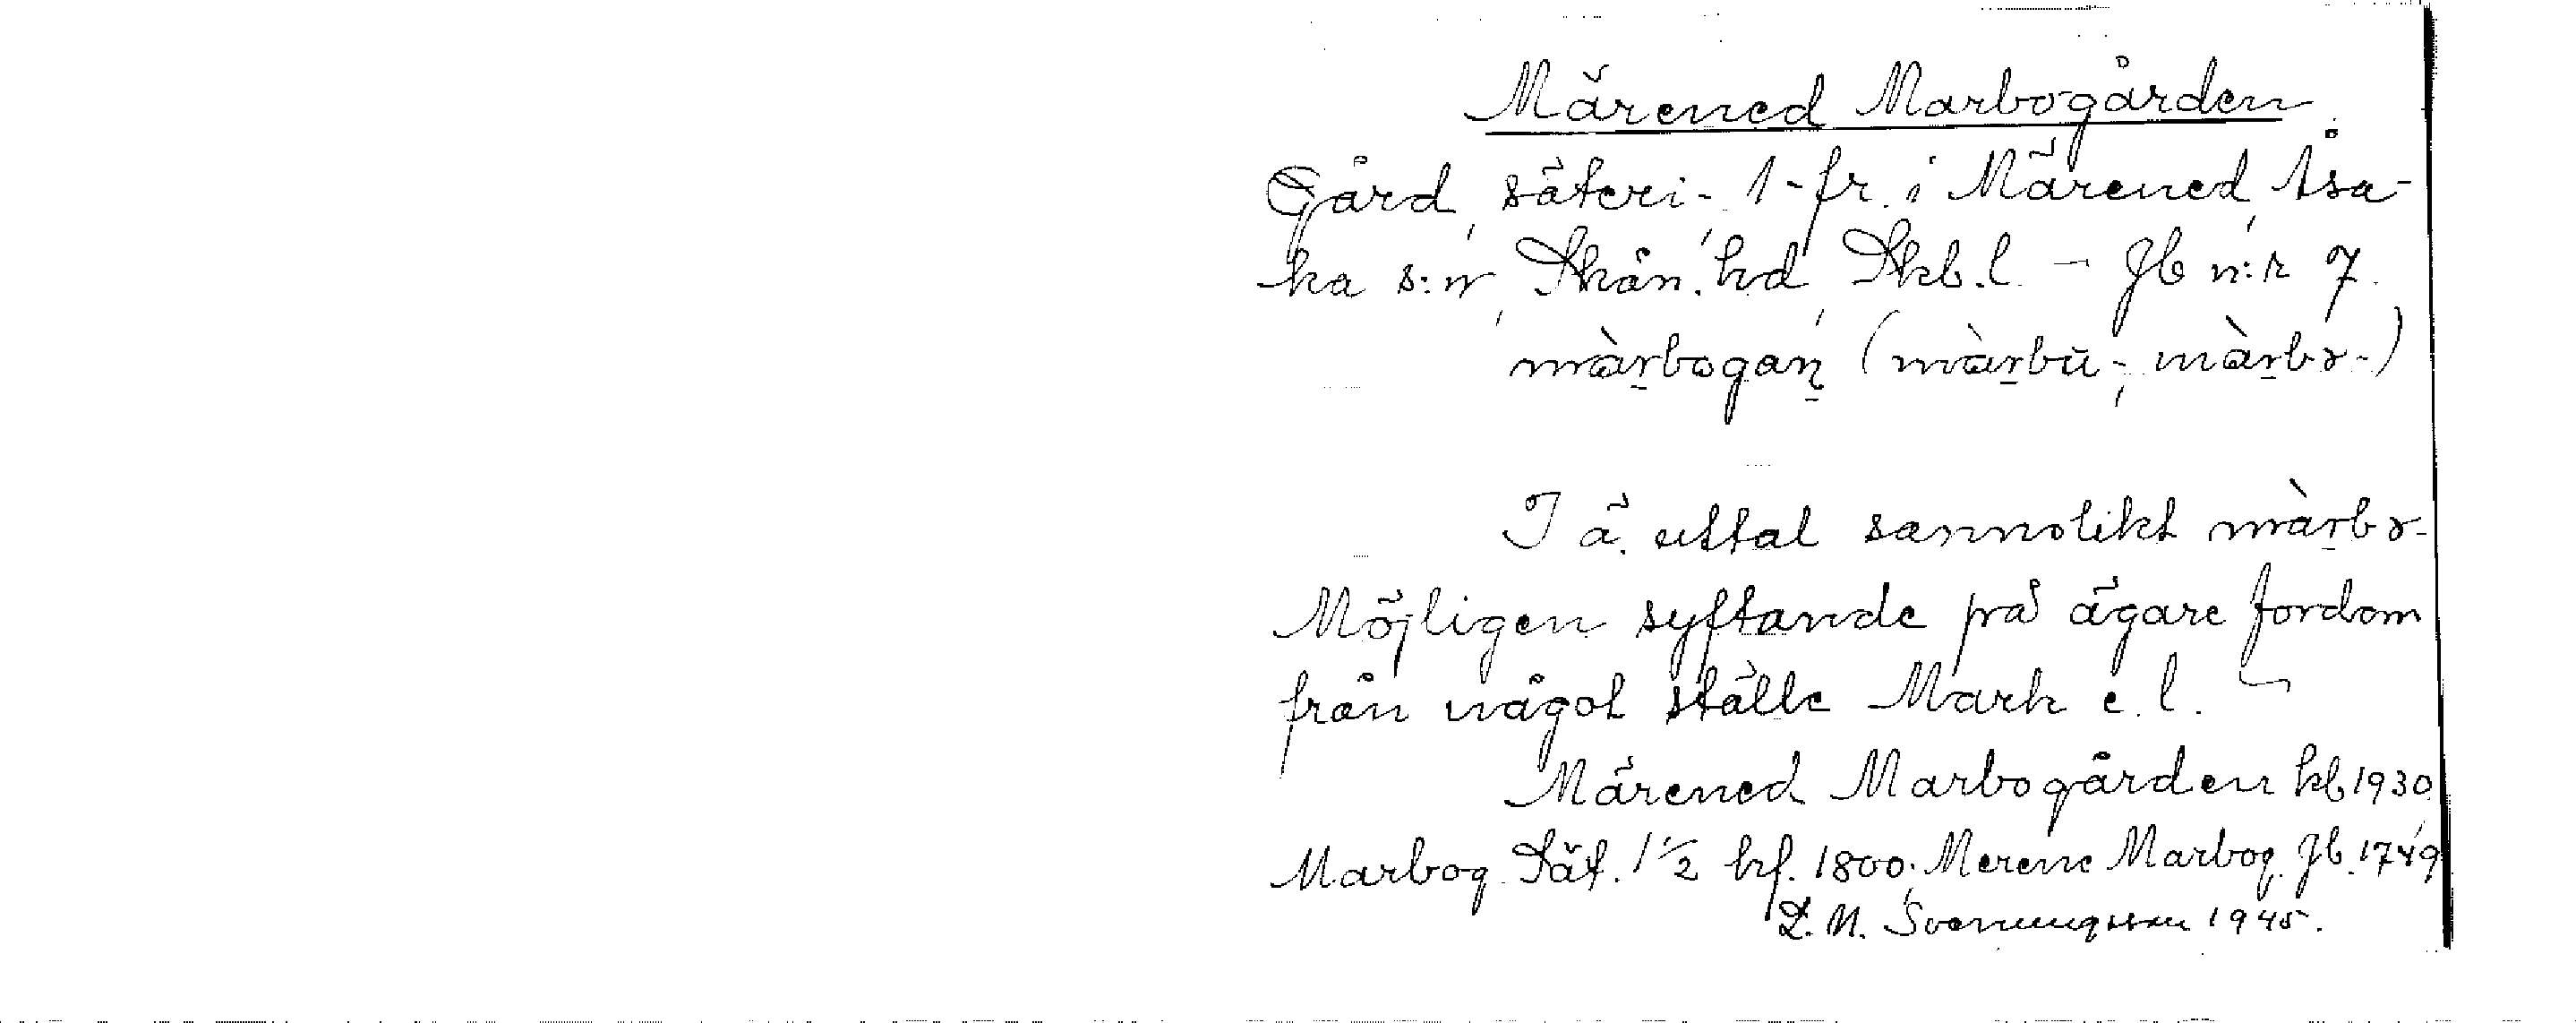 Märened Marbogården
Gård, säteri-, 1-fr. i Märened, Åsa-
ka s:n, Skån. hd, Skb. l. - Jb n:r 7.
màrbogaṉ (màrbu-, màrbɘ-)
I ä. uttal sannolikt màrbɘ-
Möjligen syftande på ägare fordom
från något ställe Mark e. l.
Märened Marbogården kb 1930
Marbog. Sät. 1 1/2 hf. 1800. Merene Marbog. Jb. 1749
Svenungsson 1945.